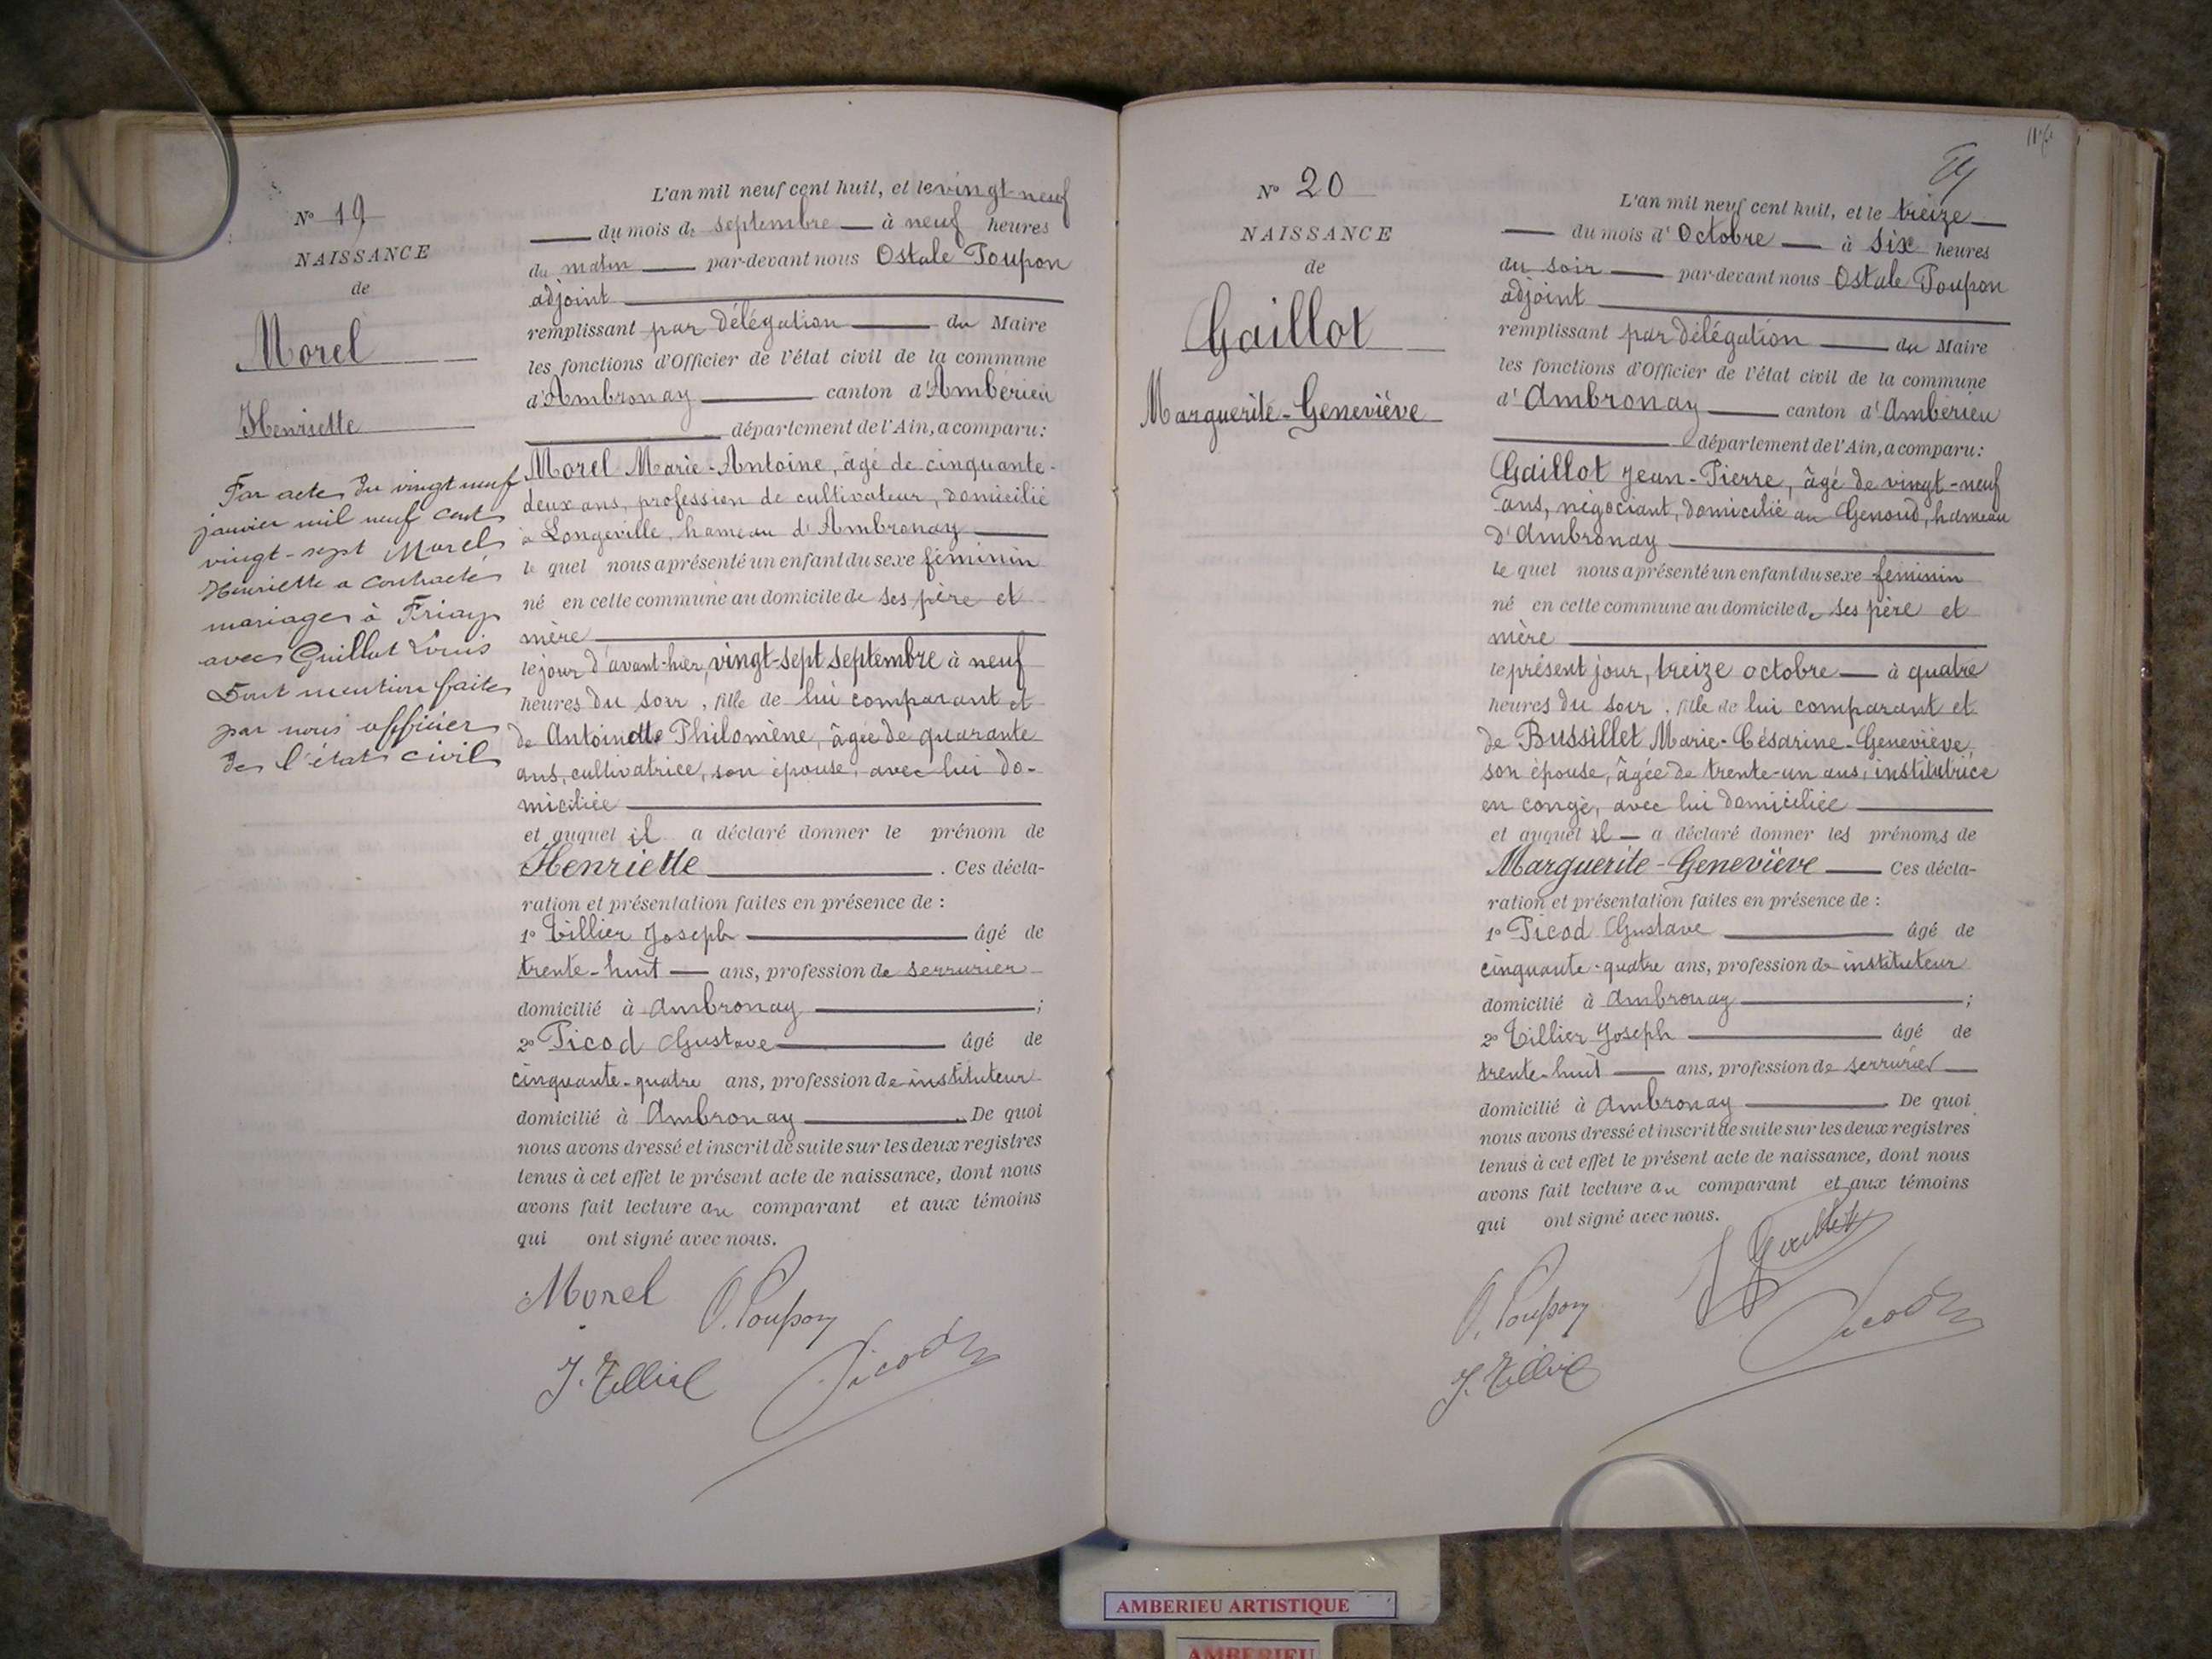 N° 19
NAISSANCE
de
Morel
Henriette
Par acte du vingt neuf
janvier mil neuf cent
vingt-sept Morel
Henriette a contracté
mariage à Priay
avec Guillot Louis
Dont mention faite
par nous officier
de l'état civil
L'an mil neuf cent huit, et le vingt-neuf
du mois de septembre à neuf heures
du matin par-devant nous Ostale Poupon
adjoint
remplissant par délégation du Maire
les fonctions d'Officier de l'état civil de la commune
d'Ambronay canton d'Ambérieu
département de l'Ain, a comparu:
Morel Marie-Antoine, âgé de cinquante-
deux ans, profession de cultivateur, domicilié
à Longeville, hameau d'Ambronay
le quel nous a présenté un enfant du sexe féminin
né en cette commune au domicile de ses père et
mère
le jour d'avant-hier, vingt-sept septembre à neuf
heures du soir, fille de lui comparant et
de Antoinette Philomène, âgée de quarante
ans, cultivatrice, son épouse, avec lui do-
miciliée
et auquel il a déclaré donner le prénom de
Henriette. Ces décla-
ration et présentation faites en présence de :
1° Tillier Joseph âgé de
trente-huit ans, profession de serrurier
domicilié à Ambronay ;
2° Picod Gustave âgé de
cinquante-quatre ans, profession de instituteur
domicilié à Ambronay. De quoi
nous avons dressé et inscrit de suite sur les deux registres
tenus à cet effet le présent acte de naissance, dont nous
avons fait lecture au comparant et aux témoins
qui ont signé avec nous.
Morel O. Poupon
J. Tillier Picod
N° 20
NAISSANCE
de
Gaillot
Marguerite-Geneviève
L'an mil neuf cent huit, et le treize
du mois d'Octobre à six heures
du soir par-devant nous Ostale Poupon
adjoint
remplissant par délégation du Maire
les fonctions d'Officier de l'état civil de la commune
d'Ambronay canton d'Ambérieu
département de l'Ain, a comparu:
Gaillot Jean-Pierre, âgé de vingt-neuf
ans, négociant, domicilié au Genoud, hameau
d'Ambronay
le quel nous a présenté un enfant du sexe féminin
né en cette commune au domicile de ses père et
mère
le présent jour, treize octobre à quatre
heures du soir, fille de lui comparant et
de Bussillet Marie-Césarine-Geneviève,
son épouse, âgée de trente-un ans, institutrice
en congé, avec lui domiciliée
et auquel il a déclaré donner les prénoms de
Marguerite-Geneviève Ces décla-
ration et présentation faites en présence de :
1° Picod Gustave âgé de
cinquante-quatre ans, profession de instituteur
domicilié à Ambronay ;
2° Tillier Joseph âgé de
trente-huit ans, profession de serrurier
domicilié à Ambronay. De quoi
nous avons dressé et inscrit de suite sur les deux registres
tenus à cet effet le présent acte de naissance, dont nous
avons fait lecture au comparant et aux témoins
qui ont signé avec nous.
Gaillot
O. Poupon Picod
J. Tillier
AMBERIEU ARTISTIQUE
AMBERIEU